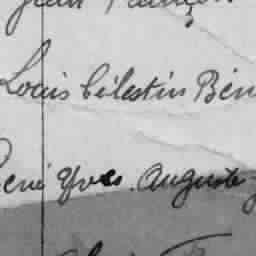 Jean
Louis Célestin Bén
René Yves Auguste